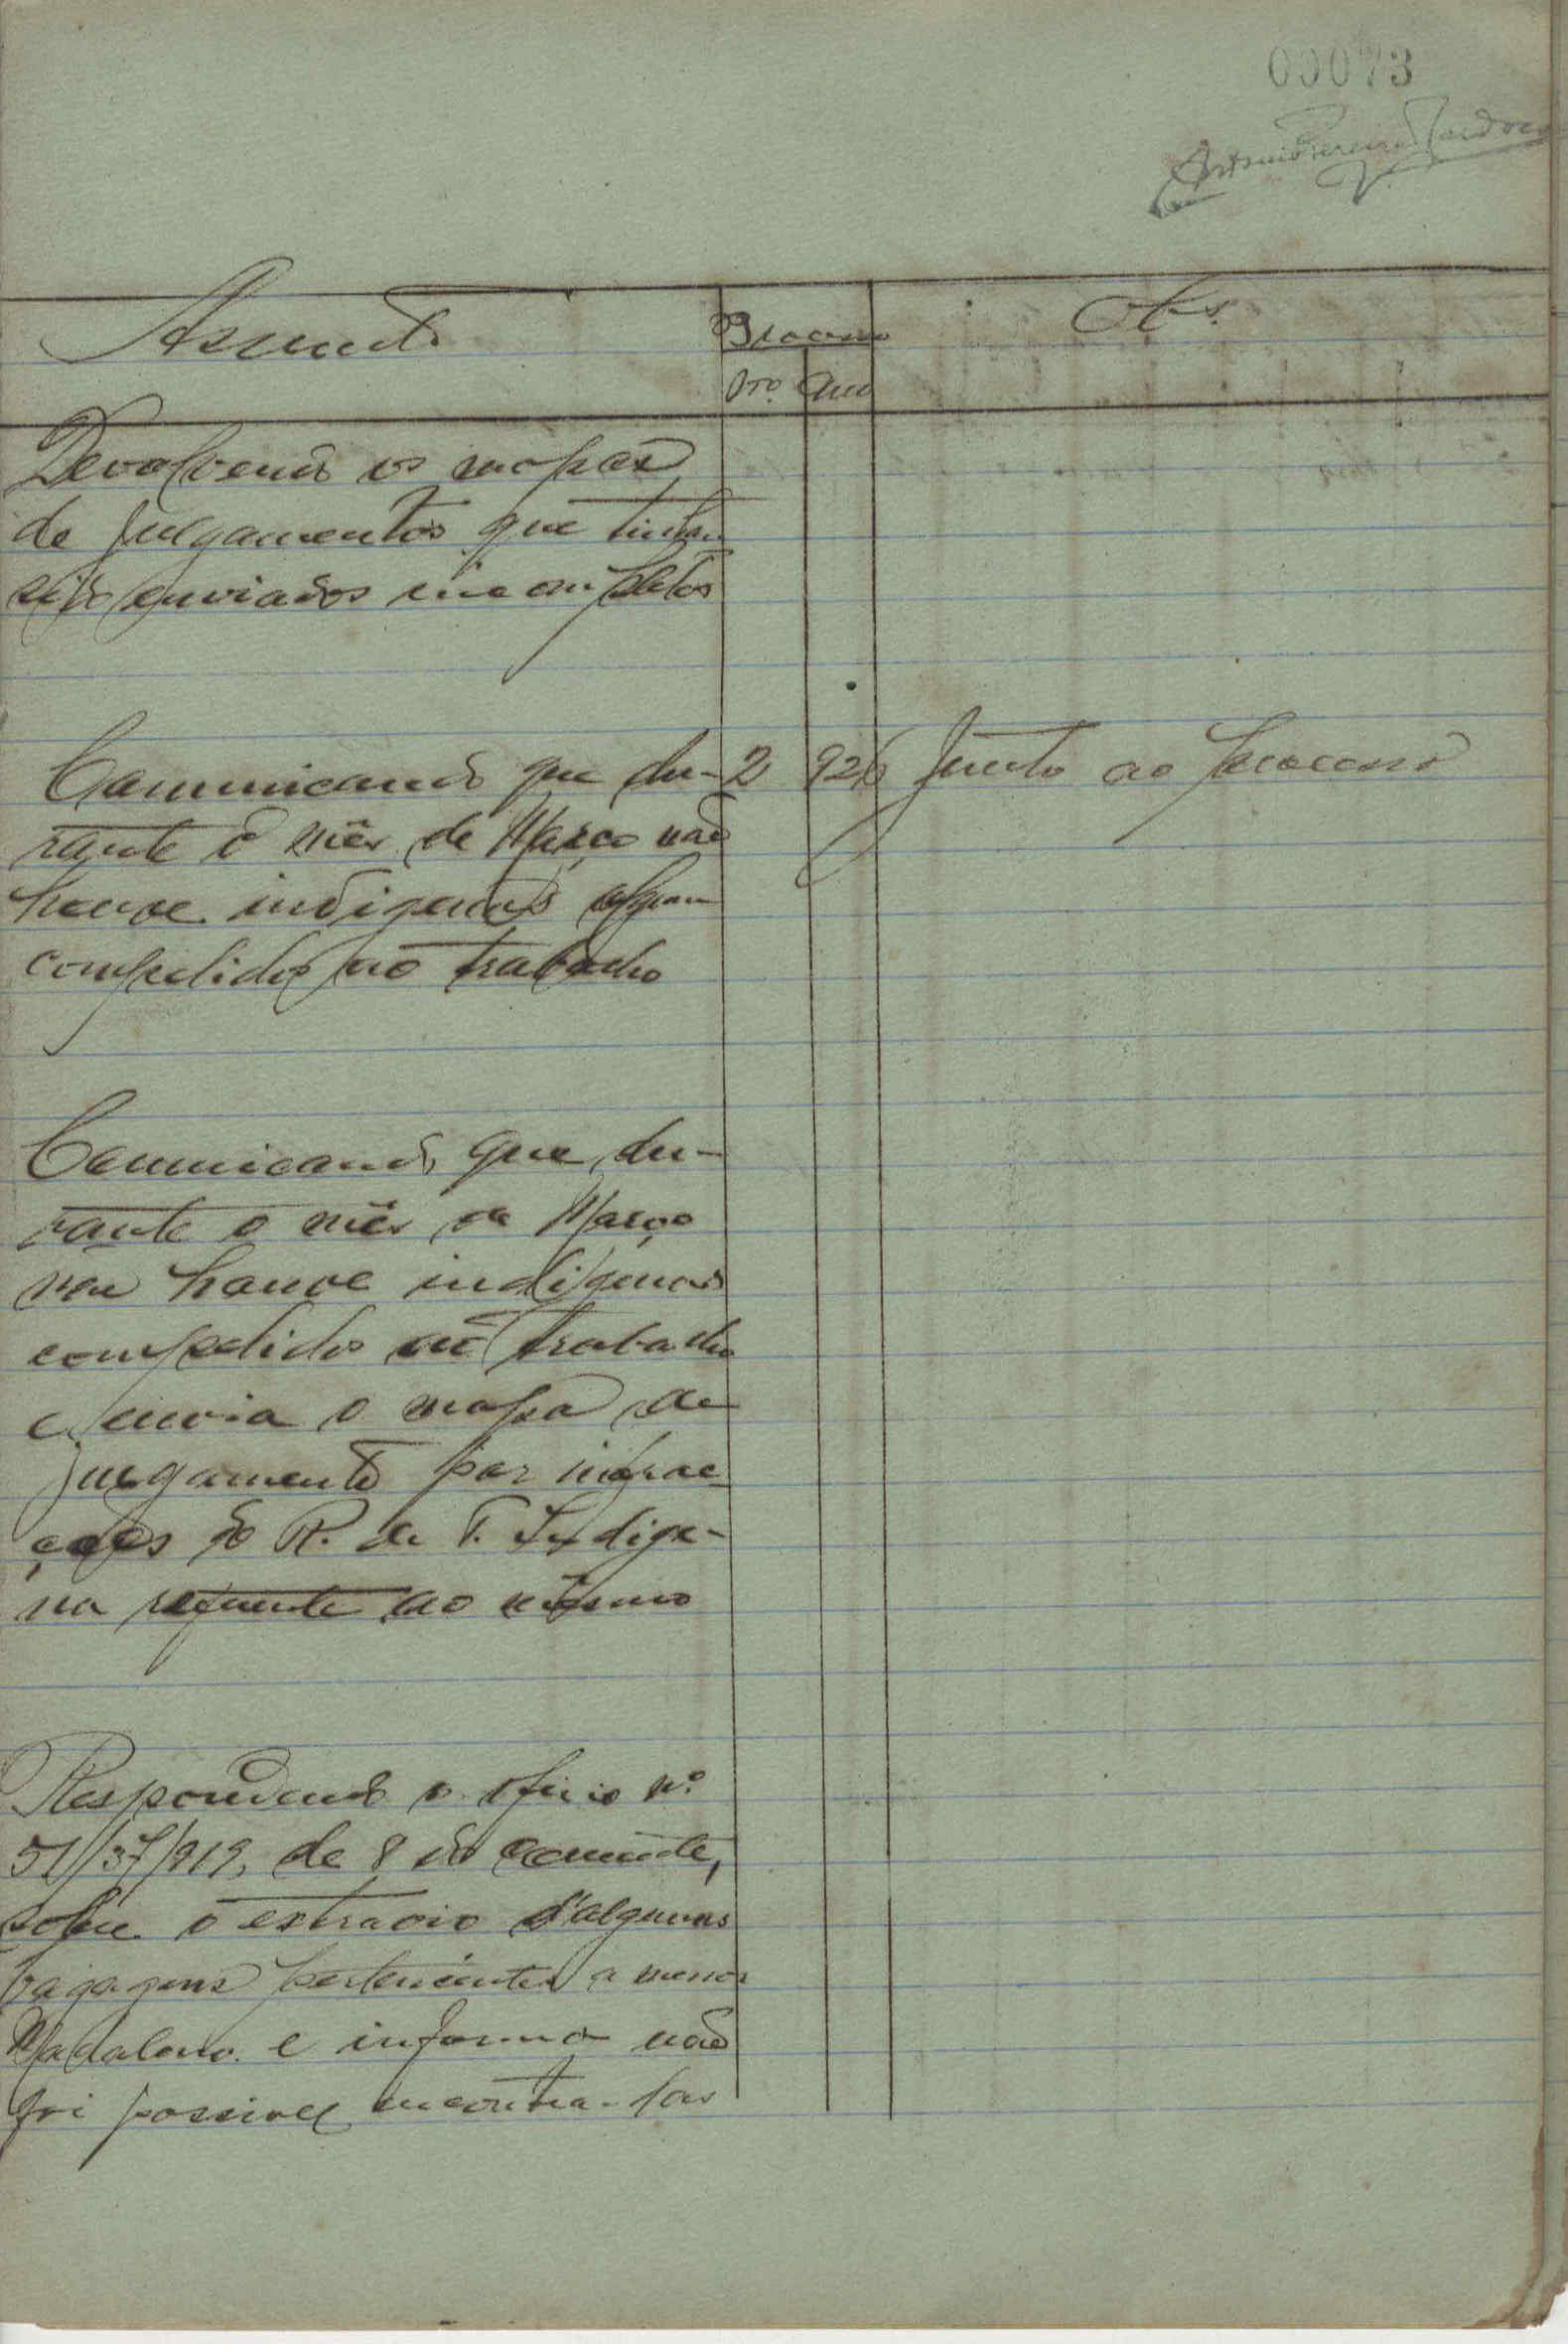 00073
Antonio Pereira Cardoso
Assunto
Processo
Obs.
No. Ano
Devolvendo os mapas
de julgamentos que tinham
sido enviados incompletos
Comunicando que du- 2 926 Junto ao processo
rante o mês de Março não
houve indigenas algum
compelidos ao trabalho
Comunicando que du-
rante o mês de Março
não houve indigenas
compelidos ao trabalho
e envia o mapa de
julgamento por infrac-
ções do R. de T. Indige-
na referente ao mesmo
Respondendo o oficio n.º
51/37/919, de 8 do corrente,
sobre o extravio d'algumas
bagagens pertencentes a menor
Madalena e informa não
foi possivel encontra-las